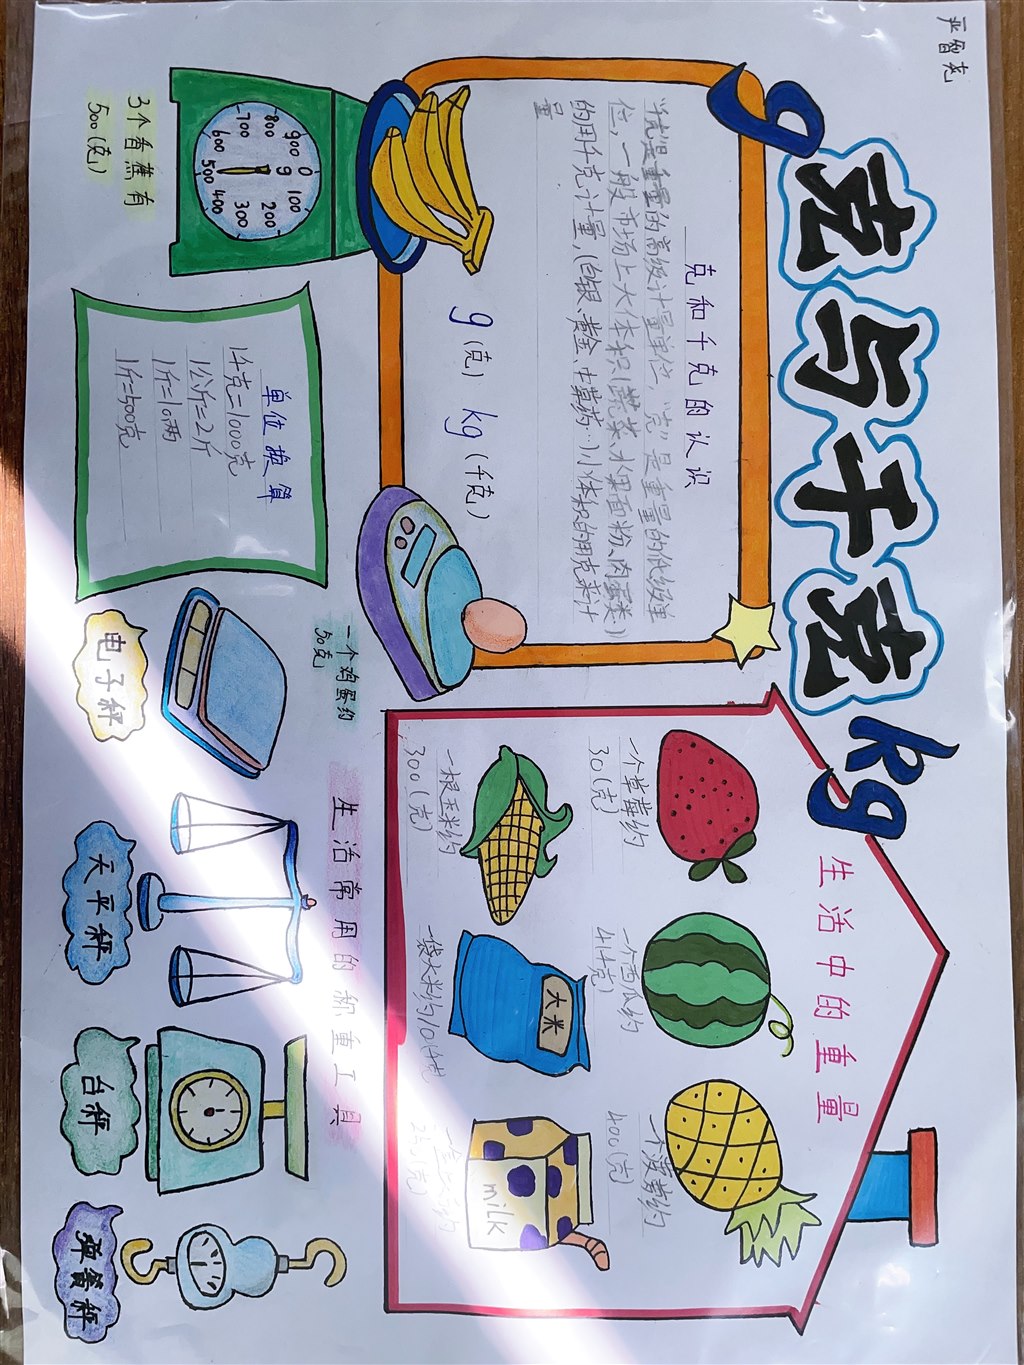 严智尧
g 克与千克 kg
克和千克的认识
千克是重量的高级计量单位，"克"是重量的低级单
位，一般市场上大体积(蔬菜、水果、面粉、肉蛋类)
的用千克计量，(白银、黄金、中草药…)小体积的用克来计
量
g(克) kg(千克)
3个香蕉有
500(克)
0
100
200
300
400
500
600
700
800
900
g
单位换算
1千克=1000克
1公斤=2斤
1斤=10两
1斤=500克
一个鸡蛋约
50克
生活中的重量
一个草莓约
30(克)
一个西瓜约
4(千克)
一个菠萝约
400(克)
一根玉米约
300(克)
大米
一袋大米约10(千克)
milk
生活常用的称重工具
电子秤
天平秤
台秤
弹簧秤